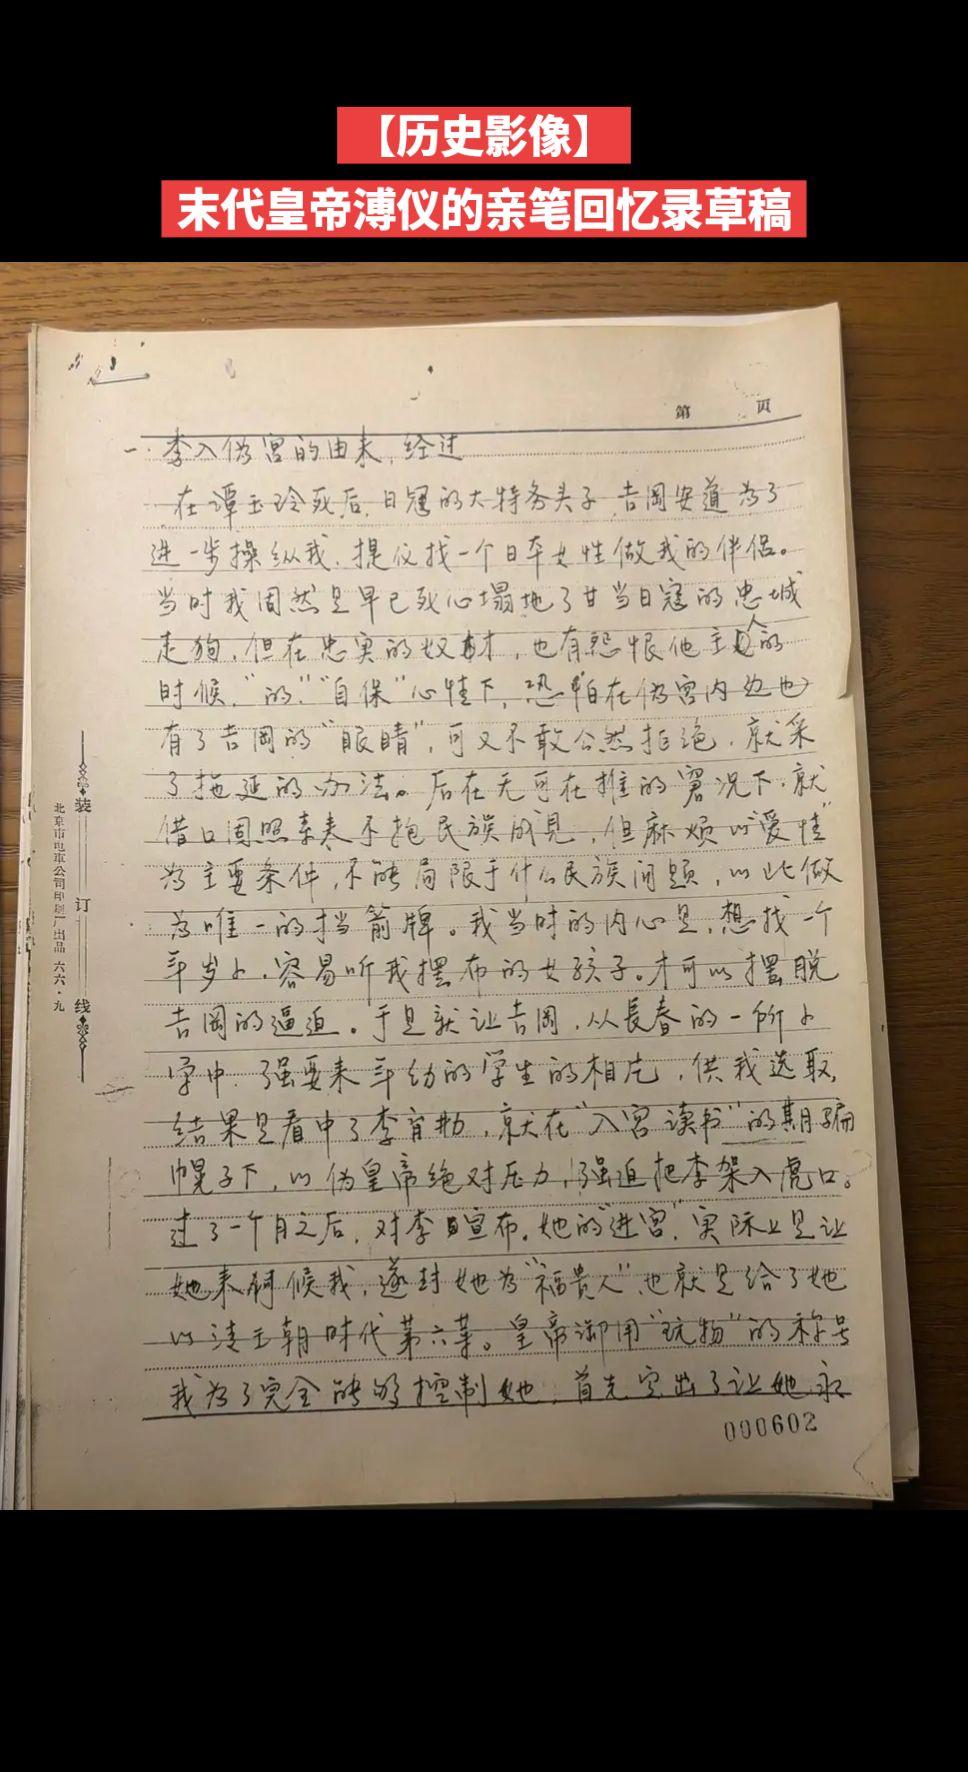 【历史影像】
末代皇帝溥仪的亲笔回忆录草稿
第 页
一. 李入伪宫的由来、经过
在谭玉玲死后,日寇的大特务头子 吉岡安道为了
进一步操纵我,提仪找一个日本女性做我的伴侣。
当时我固然是早已死心塌地了甘当日寇的忠城
走狗,但在忠实的奴才,也有怨恨他主人的
时候,“的”“自保”心情下,恐怕在伪宫内边也
有了吉岡的“眼睛”,可又不敢公然拒绝,就采
了拖延的办法。后在无可在推的窘况下,就
借口固照素来不抱民族成見,但麻烦以“爱情”
为主要条件,不能局限于什么民族问题,以此做
为唯一的挡箭牌。我当时的内心是,想找一个
年岁小,容易听我摆布的女孩子。才可以摆脱
吉岡的逼迫。于是就让吉岡,从長春的一所小
学中,强要来年幼的学生的相片,供我选取,
结果是看中了李 ,就在“入宫读书”的期骗
幌子下,以伪皇帝绝对压力,强迫把李架入虎口。
过了一个月之后,对李宣布,她的“进宫”,实际上是让
她来伺候我,遂封她为“福贵人”,也就是给了她
以清王朝时代第六等。皇帝御用“玩物”的称号
我为了完全能够控制她,首先定出了让她永
000602
装订线
北京市电車公司印刷厂出品 六六·九